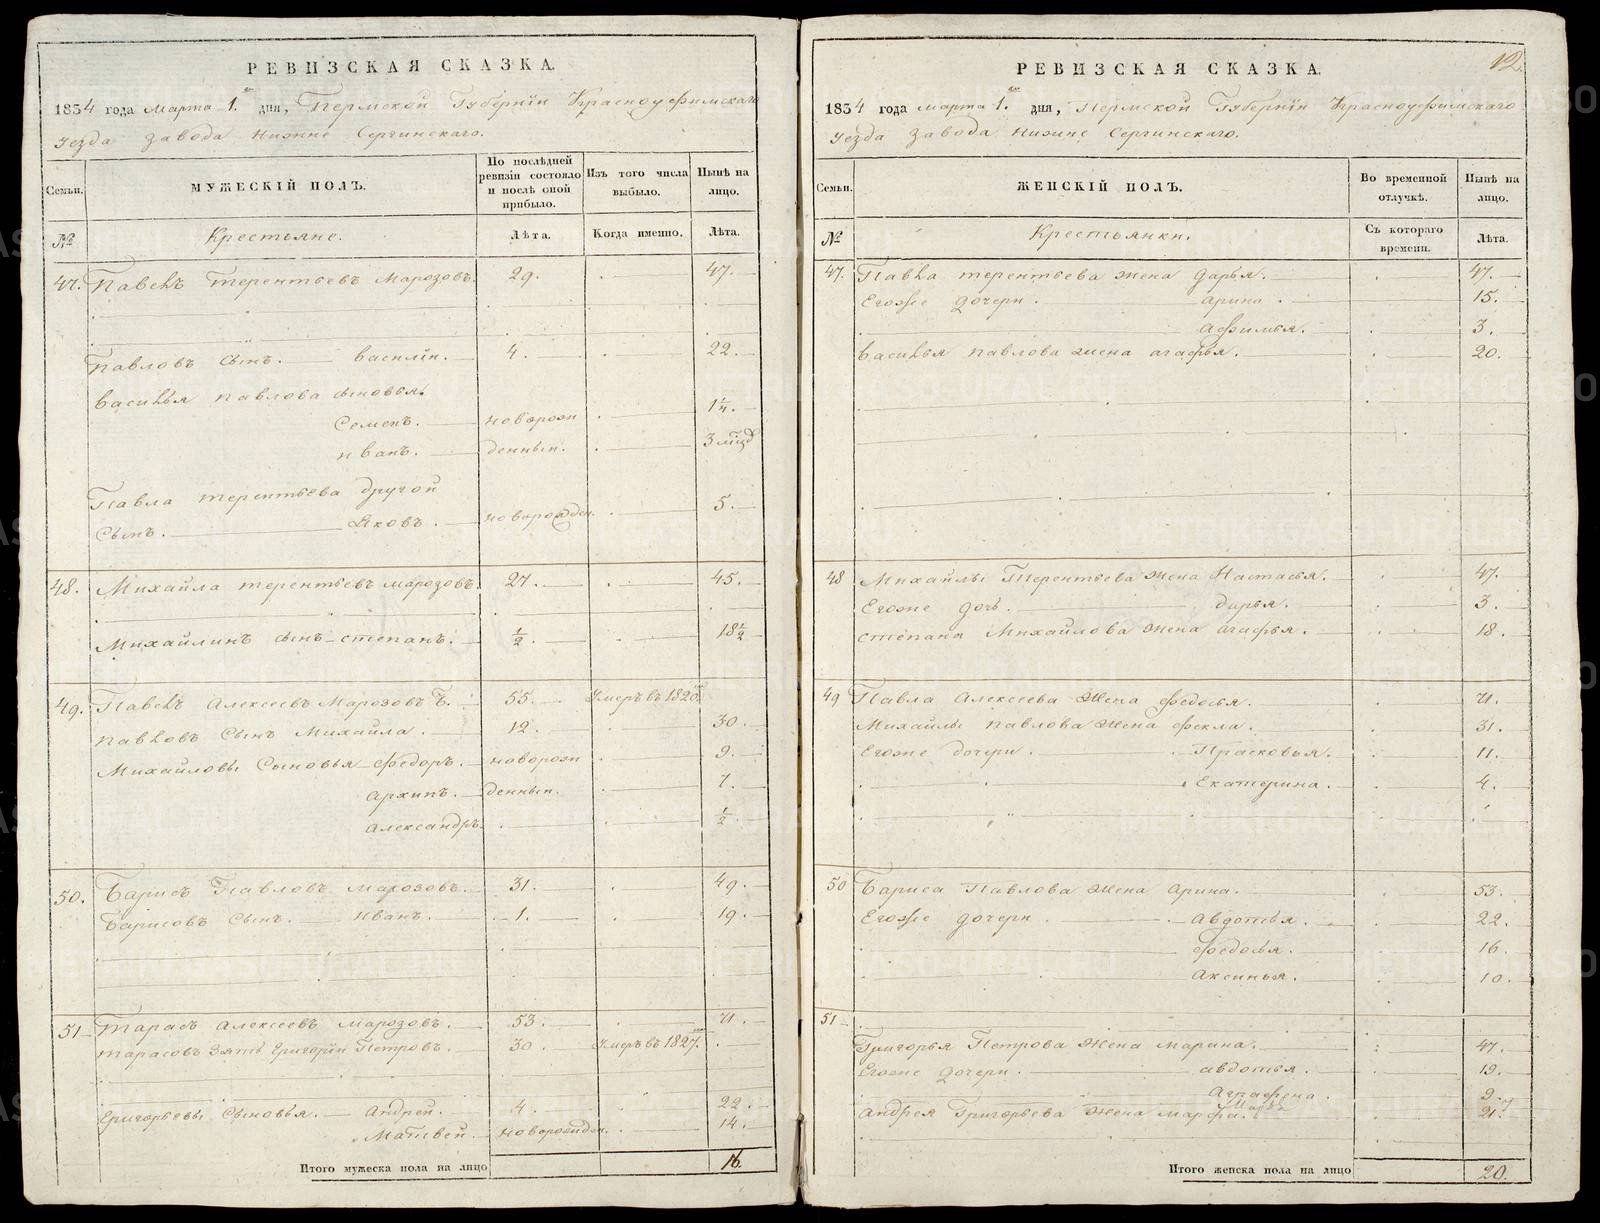 РЕВИЗСКАЯ СКАЗКА.
1834 года Марта 1го дня, Пермской Губернiи Красноуфимскаго
уезда завода Нижне Сергинскаго.
Семьи.
МУЖЕСКIЙ ПОЛЪ.
По послѣдней ревизiи состояло и послѣ оной прибыло.
Изъ того числа выбыло.
Нынѣ на лицо.
№
Крестьяне.
Лѣта.
Когда именно.
Лѣта.
47. Павелъ Терентьевъ Марозовъ. 29. 47.
Павловъ сынъ. Василiи. 4. 22.
Василья Павлова сыновья.
Семенъ. новорож 1¼.
Иванъ. денныи. 3 мѣсд
Павла Терентьева другой
Сынъ. Яковъ. новорожден. 5.
48. Михайла Терентьевъ Марозовъ. 27. 45.
Михайлинъ сынъ Степанъ. ½. 18½
49. Павелъ Алексеевъ Марозовъ Б. 55. Умеръ въ 1820м
Павловъ Сынъ Михайла. 12. 30.
Михайловы Сыновья Федоръ. новорож 9.
Архипъ. денныи. 7.
Александръ. ½.
50. Барисъ Павловъ Марозовъ. 31. 49.
Барисовъ Сынъ. Иванъ. 1. 19.
51 Тарасъ Алексеевъ Марозовъ. 53. 71.
Тарасовъ Зять Григорiи Петровъ. 30. Умеръ въ 1827м
Григорьевы Сыновья. Андрей. 4. 22.
Матвей. новорожден. 14.
Итого мужеска пола на лицо 16.
12.
РЕВИЗСКАЯ СКАЗКА.
1834 года Марта 1го дня, Пермской Губернiи Красноуфимскаго
уезда завода Нижне Сергинскаго.
Семьи.
ЖЕНСКIЙ ПОЛЪ.
Во временной отлучкѣ.
Нынѣ на лицо.
№
Крестьянки.
Съ котораго времени.
Лѣта.
47. Павла Терентьева жена Дарья. 47.
Егоже дочери. Арина. 15.
Афимья. 3.
Василья Павлова жена Агафья. 20.
48 Михайлы Терентьева жена Настасья. 47.
Егоже дочь. Дарья. 3.
Степана Михайлова жена Агафья. 18.
49 Павла Алексеева жена Федосья. 71.
Михайлы Павлова жена Фекла. 31.
Егоже дочери. Прасковья. 11.
Екатерина. 4.
50 Бариса Павлова жена Арина. 53.
Егоже дочери. Авдотья. 22.
Федосья. 16
Аксинья. 10.
51
Григорья Петрова жена Марина. 47.
Егоже дочери. Авдотья. 19.
Аграфена. 9
Андрея Григорьева жена Марфа. 21.
Итого женска пола на лицо 20.
METRIKI.GASO-URAL.RU